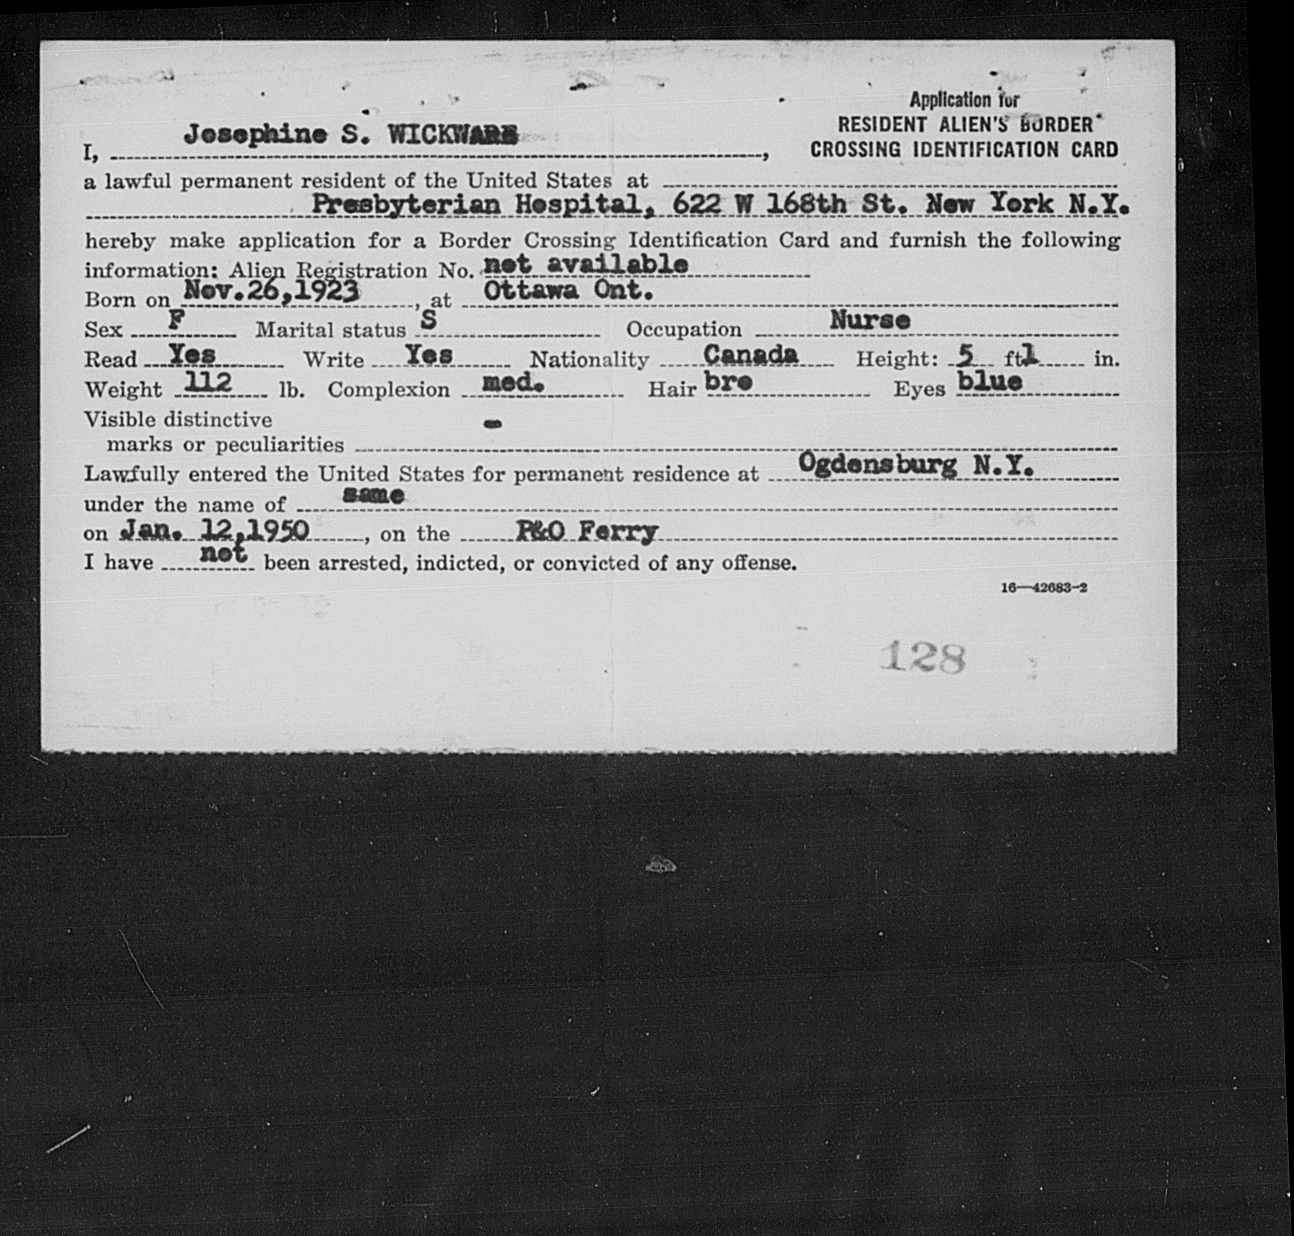 Application for
RESIDENT ALIEN'S BORDER
CROSSING IDENTIFICATION CARD
I, Josephine S. WICKWARE,
a lawful permanent resident of the United States at
Presbyterian Hospital, 622 W 168th St. New York N.Y.
hereby make application for a Border Crossing Identification Card and furnish the following
information: Alien Registration No. not available
Born on Nov.26,1923, at Ottawa Ont.
Sex F Marital status S Occupation Nurse
Read Yes Write Yes Nationality Canada Height: 5 ft 1 in.
Weight 112 lb. Complexion med. Hair bro Eyes blue
Visible distinctive
marks or peculiarities -
Lawfully entered the United States for permanent residence at Ogdensburg N.Y.
under the name of same
on Jan. 12,1950, on the P&O Ferry
I have not been arrested, indicted, or convicted of any offense.
16—42683-2
128